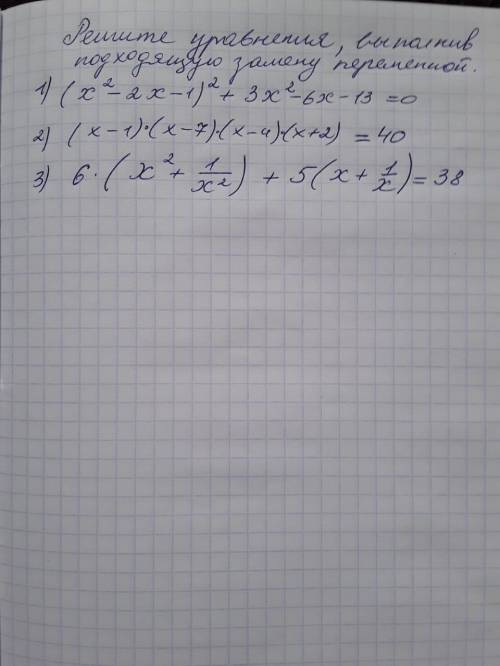 Решите уравнения, выполнив
подходящую замену переменной.
1) (x² - 2x - 1)² + 3x² - 6x - 13 = 0
2) (x - 1)·(x - 7)·(x - 4)·(x + 2) = 40
3) 6·(x² + 1/x²) + 5(x + 1/x) = 38